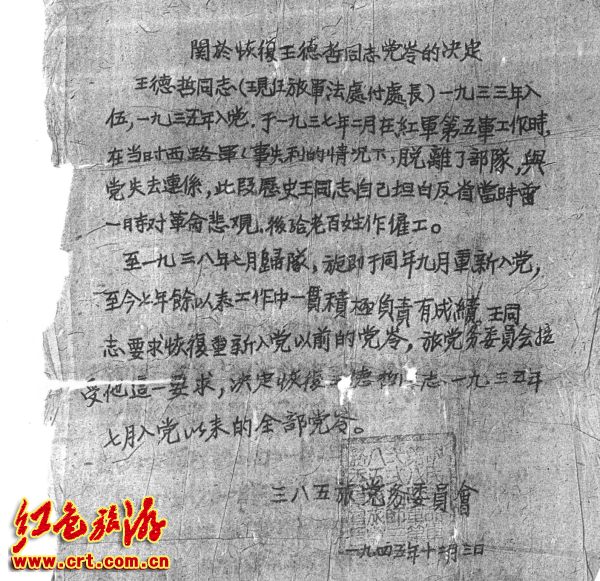 関於恢復王德哲同志党岺的决定
王德哲同志(現任旅軍法處付處長)一九三三年入
伍,一九三五年入党.于一九三七年二月在紅軍第五軍工作時,
在当时西路軍(事失利的情况下,脱離了部隊,與
党失去連係,此段歷史王同志自己坦白反省當時曾
一時对革命悲观.後给老百姓作僱工。
至一九三八年七月歸隊,旋即于同年九月重新入党,
至今七年餘以来工作中一貫積極負責有成績,王同
志要求恢復重新入党以前的党岺,旅党务委員会接
受他這一要求,决定恢復 德哲 志一九三五年
七月入党以来的全部党岺。
三八五旅党务委員會
一九四五年十 月三日
红色旅游
www.crt.com.cn